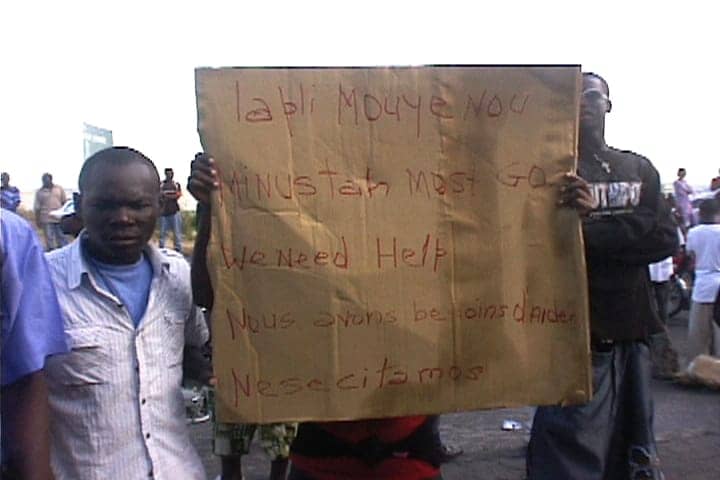 lapli Mouye Nou
MiNustah Must Go
We Need Help
Nous avons besoins d'Aide
Nesecitamos